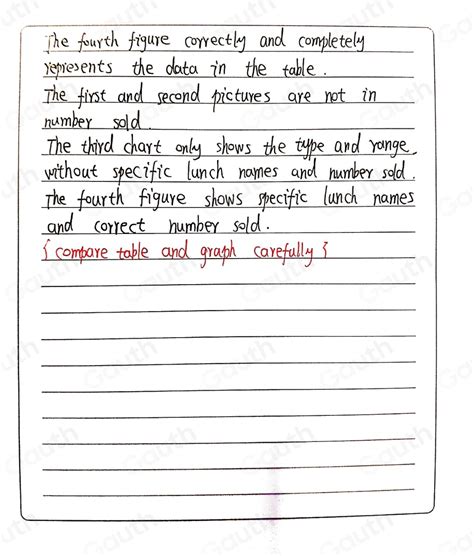 The fourth figure correctly and completely
represents the data in the table.
The first and second pictures are not in
number sold.
The third chart only shows the type and range,
without specific lunch names and number sold.
The fourth figure shows specific lunch names
and correct number sold.
{ compare table and graph carefully }